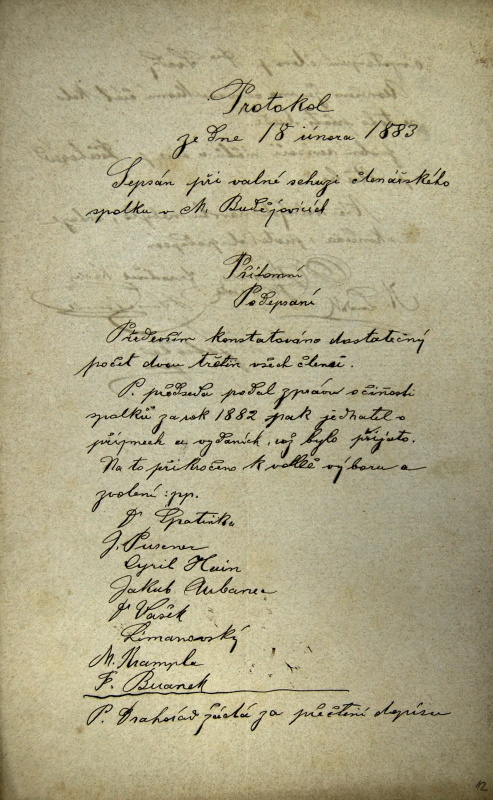 Protokol
ze dne 18 února 1883
Sepsán při valné schůzi čtenářského
spolku v M. Budějovicích
Přítomní
Podepsaní
Především konstatováno dostatečný
počet dvou třetin všech členů.
P. předseda podal zprávu o činosti
spolků za rok 1882 pak jednatel o
příjmech a vydaních, což bylo přijato.
Na to přikročeno k volbě výboru a
zvoleni: pp.
Dr Špatinka
J. Pusener
Cyril Hain
Jakub
Dr Vašek
Limanovský
M. Krampla
F. Buanek
P. Drahorád žádá za přečtení dopisu
12